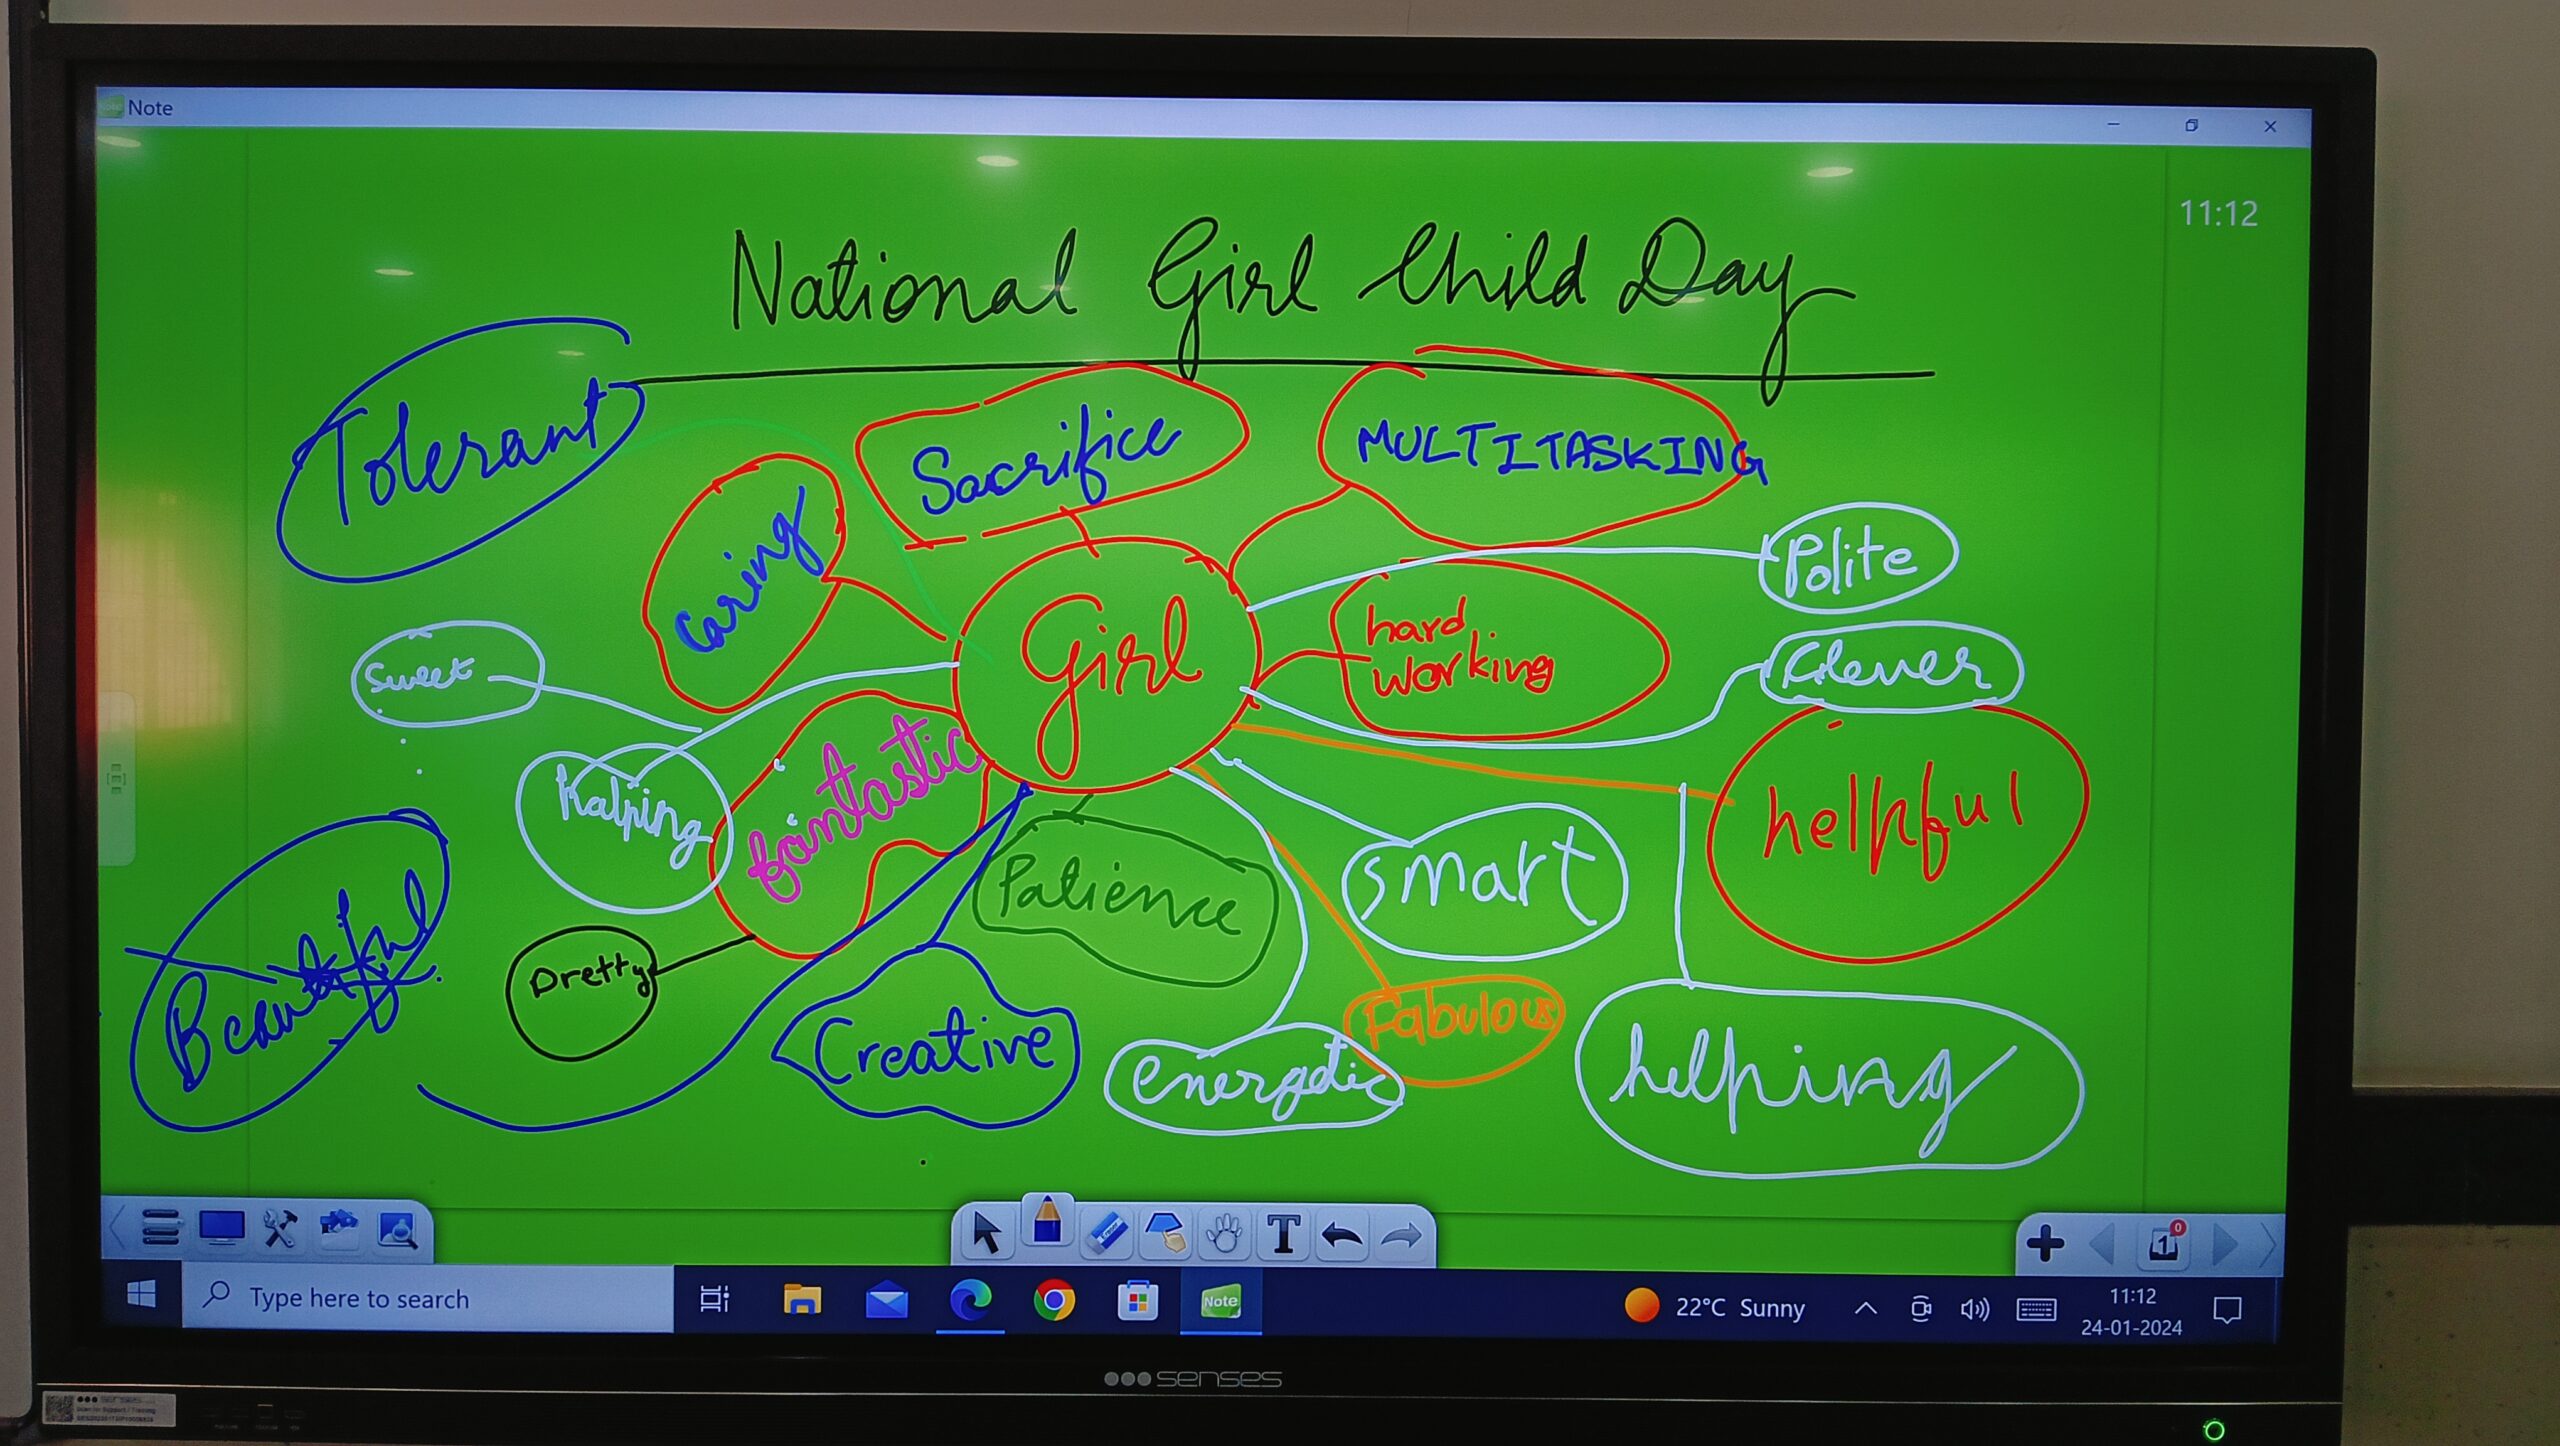 Note
11:12
National Girl Child Day
Tolerant
Sacrifice
MULTITASKING
Caring
Polite
Girl
hard
working
Clever
Sweet
fantastic
Kalping
helpful
smart
Patience
Pretty
Beautiful
Fabulous
Creative
energetic
helping
T
1
0
Type here to search
Note
22°C Sunny
11:12
24-01-2024
senses